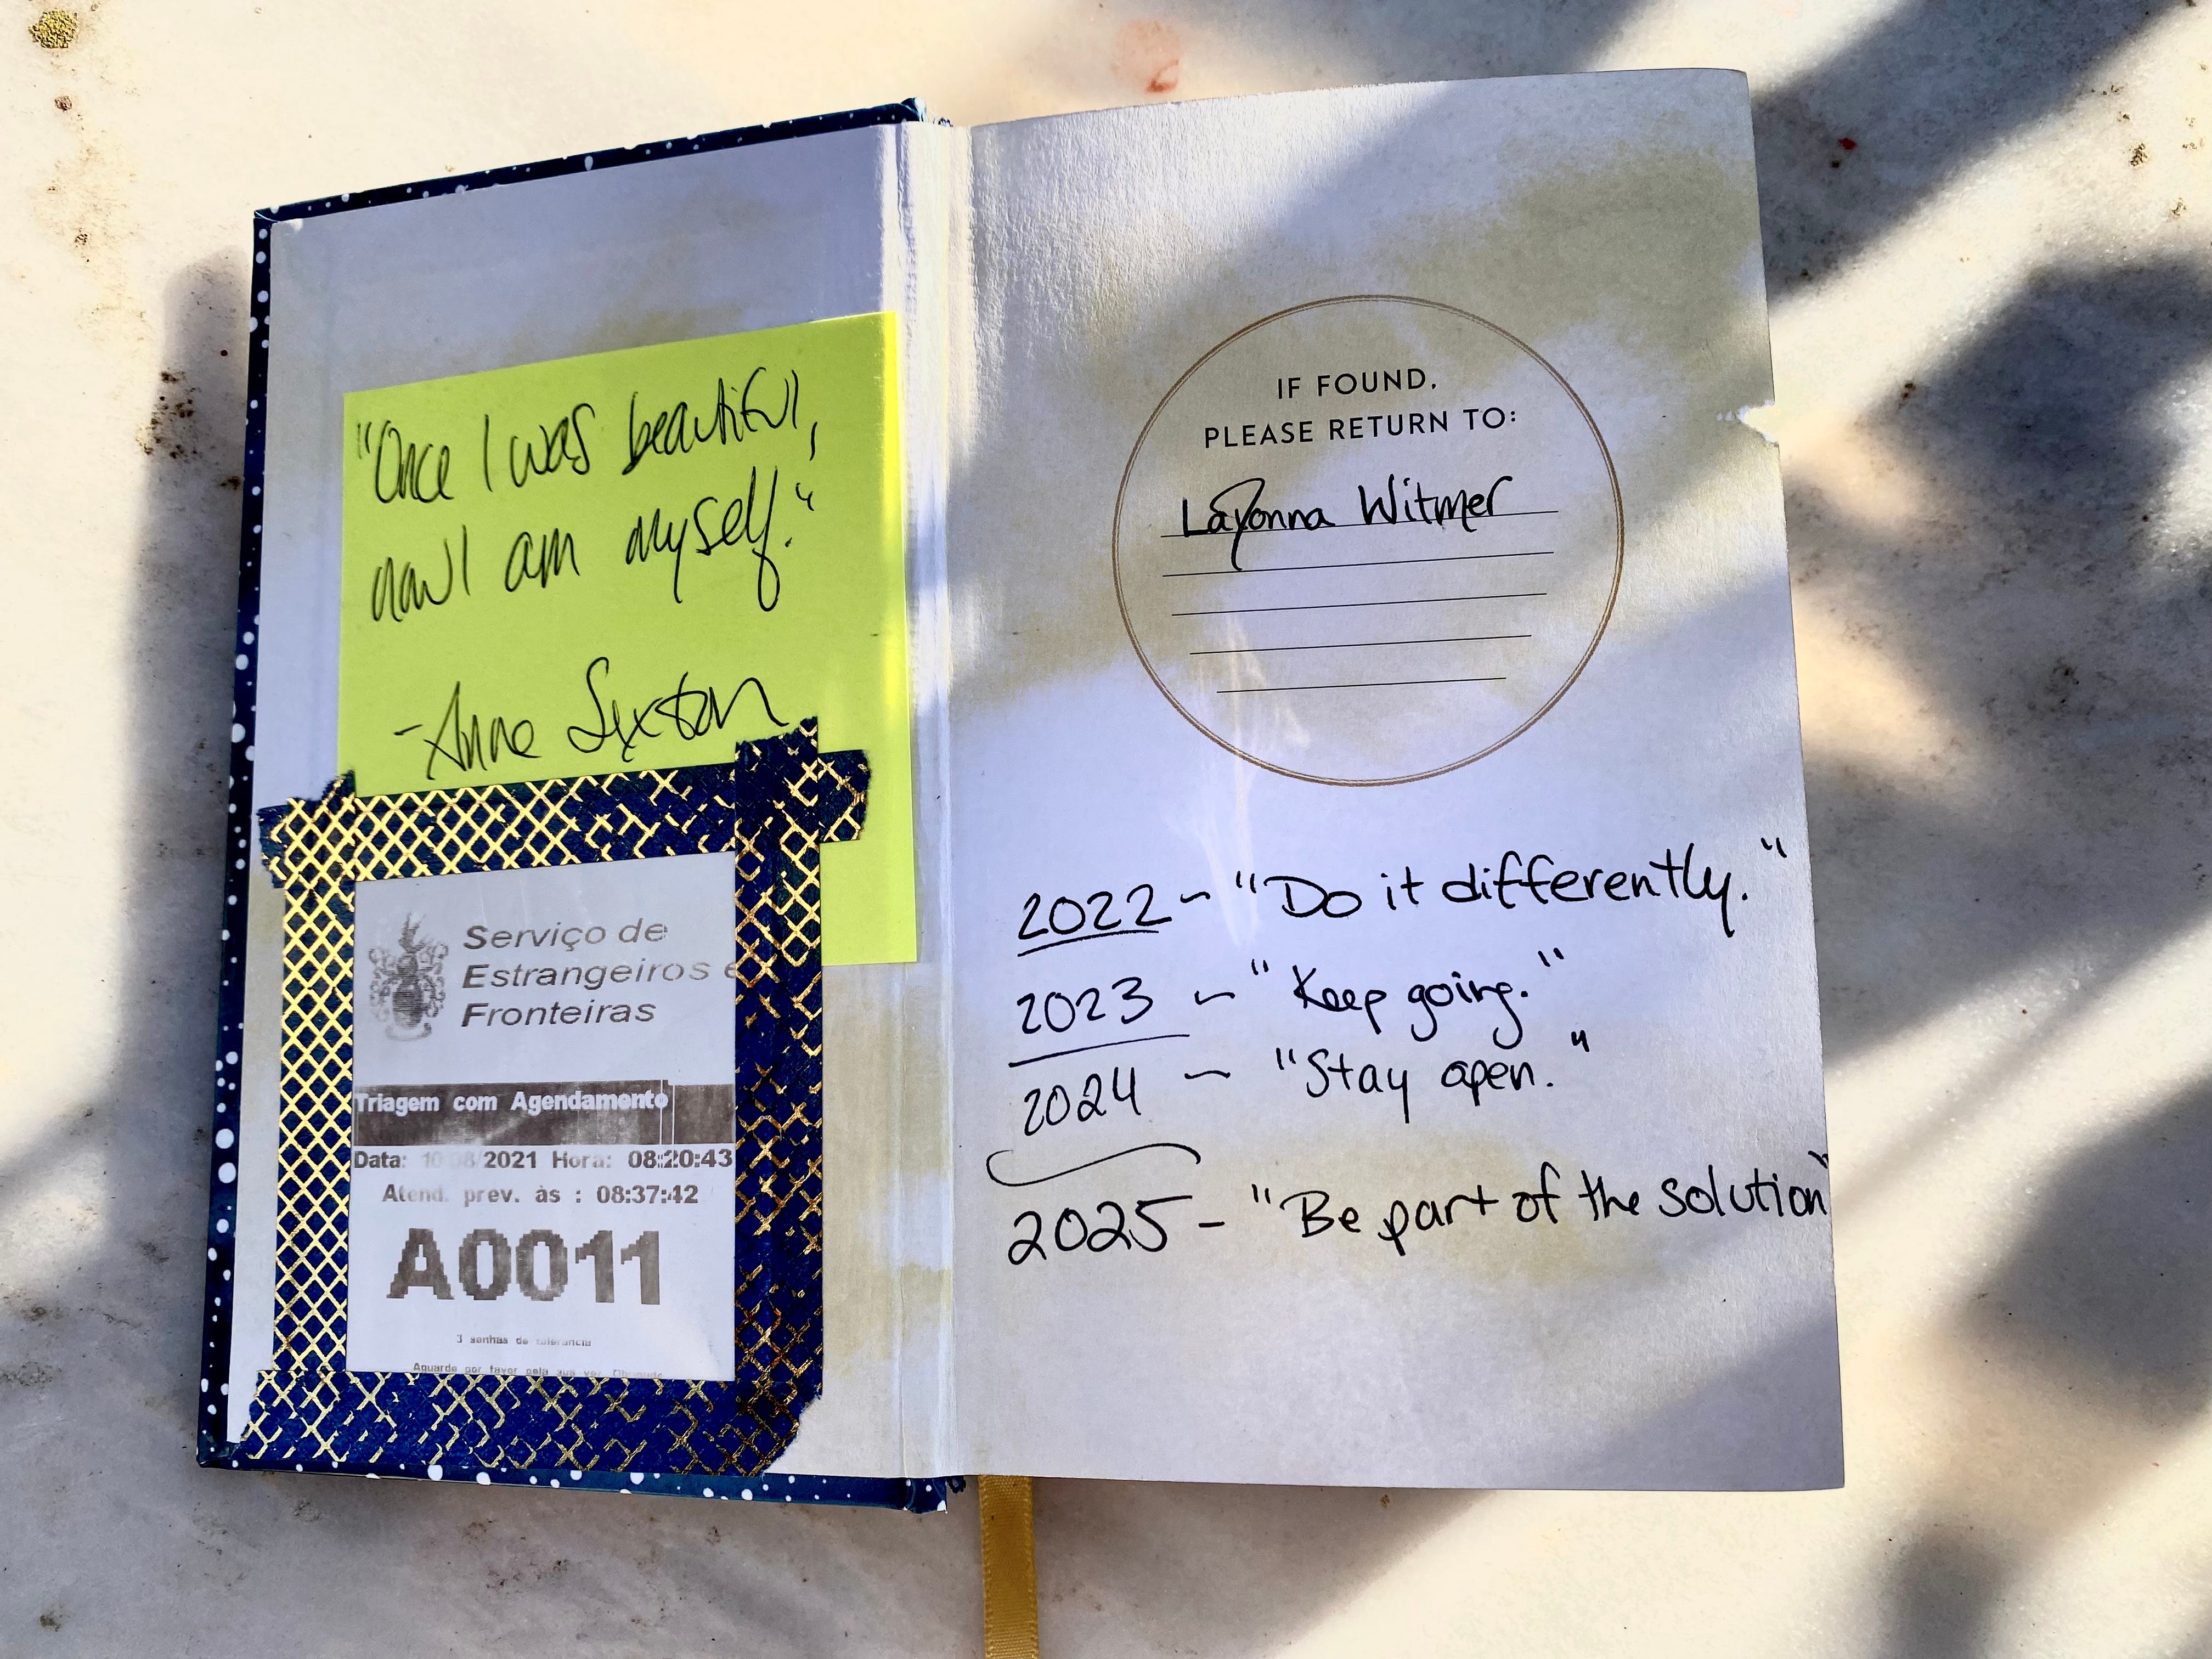 "Once I was beautiful,
now I am myself."
-Anne Sexton
Serviço de
Estrangeiros e
Fronteiras
Triagem com Agendamento
Data: 10/08/2021 Hora: 08:20:43
Atend. prev. às : 08:37:42
A0011
3 senhas de tolerancia
Aguarde por favor pela sua vez.
IF FOUND,
PLEASE RETURN TO:
LaYonna Witmer
2022 ~ "Do it differently."
2023 ~ "Keep going."
2024 ~ "Stay open."
2025 - "Be part of the solution"